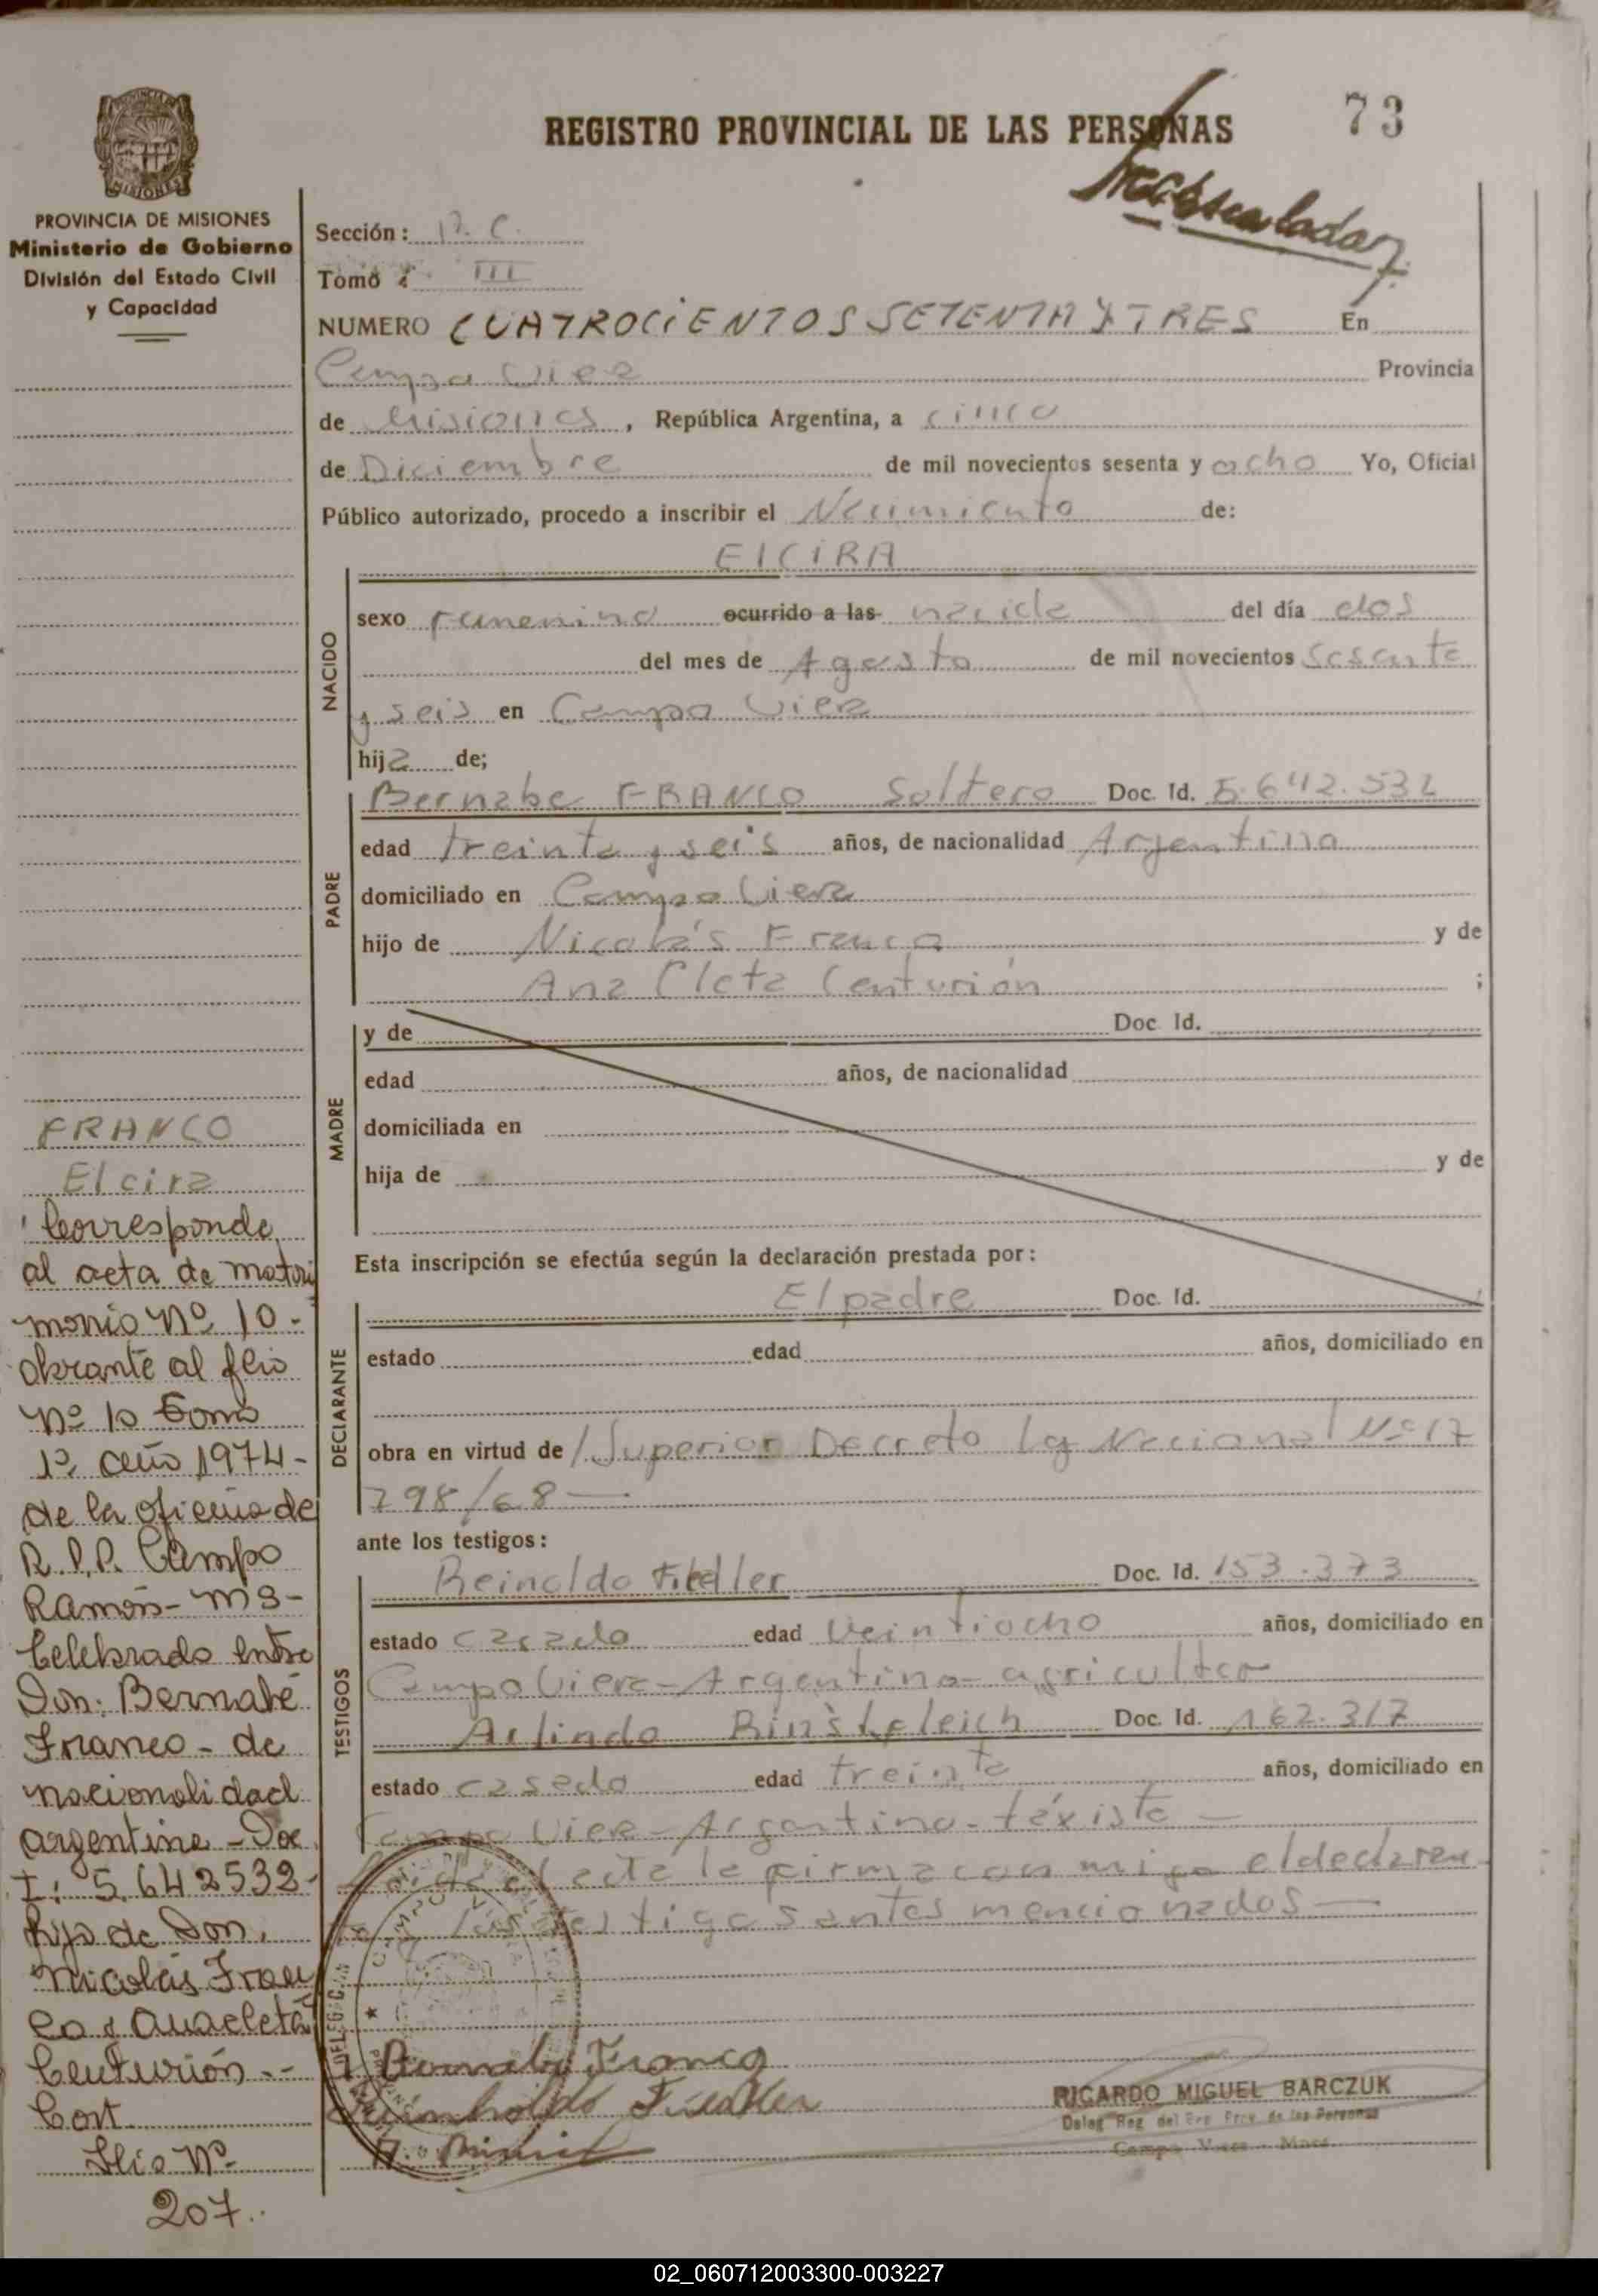 REGISTRO PROVINCIAL DE LAS PERSONAS
73
PROVINCIA DE MISIONES
Ministerio de Gobierno
División del Estado Civil
y Capacidad
Sección:
Tomo : III
NUMERO CUATROCIENTOS SETENTA Y TRES En
Campo Viera Provincia
de Misiones, República Argentina, a cinco
de Diciembre de mil novecientos sesenta y ocho Yo, Oficial
Público autorizado, procedo a inscribir el Nacimiento de:
ElCIRA
NACIDO
sexo Femenino ocurrido a las nacida del día dos
del mes de Agosto de mil novecientos sesenta
y seis en Campo Viera
hija de;
PADRE
Bernabe FRANCO Soltero Doc. Id. 5.642.532
edad treinta y seis años, de nacionalidad Argentina
domiciliado en Campo Viera
hijo de Nicolás Franco y de
Ana Cleta Centurión ;
MADRE
y de Doc. Id.
edad años, de nacionalidad
domiciliada en
hija de y de
Esta inscripción se efectúa según la declaración prestada por:
DECLARANTE
El padre Doc. Id.
estado edad años, domiciliado en
obra en virtud de / Superior Decreto Ley Nacional Nº 17
798/68 —
ante los testigos:
TESTIGOS
Reinoldo Fiedler Doc. Id. 153.373
estado casado edad Veintiocho años, domiciliado en
Campo Viera - Argentino - agricultor
Arlindo Doc. Id. 162.317
estado casado edad treinta años, domiciliado en
Campo Viera - Argentino -
acta la firma con migo el declaran
los testigos antes mencionados —
Bernabe Franco
Reimholdo Fiedler
RICARDO MIGUEL BARCZUK
Deleg Reg del Reg Prov. de las Personas
Campo Viera - Mnes
FRANCO
Elcira
Corresponde
al acta de matri
monio Nº 10 -
obrante al flio
Nº 10 Tomo
1º año 1974 -
de la oficina de
R.P.P. Campo
Ramón - Ms -
Celebrado entre
Don: Bernabé
Franco - de
nacionalidad
argentina - Doc
I: 5.642532 -
hijo de Don,
Nicolás Fran
co y Anacleta
Centurión. -
Cort
Flio Nº
207..
02_060712003300-003227